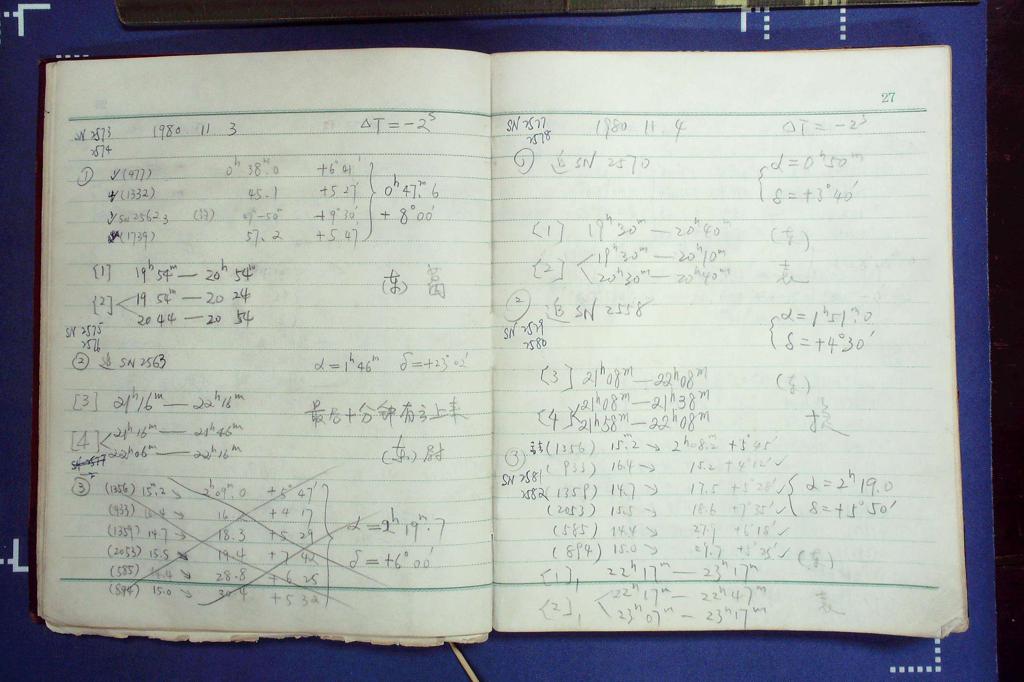 SN 2573
2574
1980 11 3 ΔT = -2ˢ
① √(977) 0ʰ 38ᵐ.0 +6°41′
√(1332) 45.1 +5 27′
√SN2562.3 +9°30′
√(1739) 57.2 +5.47
0ʰ 47ᵐ.6
+ 8°00′
[1] 19ʰ 54ᵐ — 20ʰ 54ᵐ
[2] 19 54ᵐ — 20 24
20 44 — 20 54
(东)
SN 2575
2576
② 追 SN 2563 α = 1ʰ46ᵐ δ = +23°02′
[3] 21ʰ16ᵐ — 22ʰ16ᵐ
最后十分钟有云上来
[4] 21ʰ16ᵐ — 21ʰ46ᵐ
22ʰ06ᵐ — 22ʰ16ᵐ
(东) 尉
③ (1356) 15ᵐ.2 → 2ʰ09ᵐ.0 +5°47′
(933) 16.4 → 16 +4 17
(1359) 14.7 → 18.3 +5 29
(2053) 15.5 → 19.4 +7 42
(585) 14.4 → 28.8 +6 25
(894) 15.0 → 30.4 +5 32
α = 2ʰ 19ᵐ.7
δ = +6°00′
27
SN 2577
2578
1980 11. 4 ΔT = -2ˢ
① 追 SN 2570
α = 0ʰ50ᵐ
δ = +3°40′
[1] 19ʰ30ᵐ — 20ʰ40ᵐ
[2] 19ʰ30ᵐ — 20ʰ10ᵐ
20ʰ30ᵐ — 20ʰ40ᵐ
(东)
袁
② 追 SN 2558
SN 2579
2580
α = 1ʰ51ᵐ.0
δ = +4°30′
[3] 21ʰ08ᵐ — 22ʰ08ᵐ
(东)
[4] 21ʰ08ᵐ — 21ʰ38ᵐ
21ʰ58ᵐ — 22ʰ08ᵐ
③ (1356) 15ᵐ.2 → 2ʰ08ᵐ.2 +5°45′
(933) 16.4 → 15.2 +4°12′ √
SN 2581
2582
(1359) 14.7 → 17.5 +5°28′ √
(2053) 15.5 → 18.6 +7°35′ √
(585) 14.4 → 27.9 +6°18′ √
(894) 15.0 → 29.7 +5°25′ √
α = 2ʰ 19.0
δ = +5°50′
(东)
[1], 22ʰ17ᵐ — 23ʰ17ᵐ
[2], 22ʰ17ᵐ — 22ʰ47ᵐ
23ʰ07ᵐ — 23ʰ17ᵐ
袁